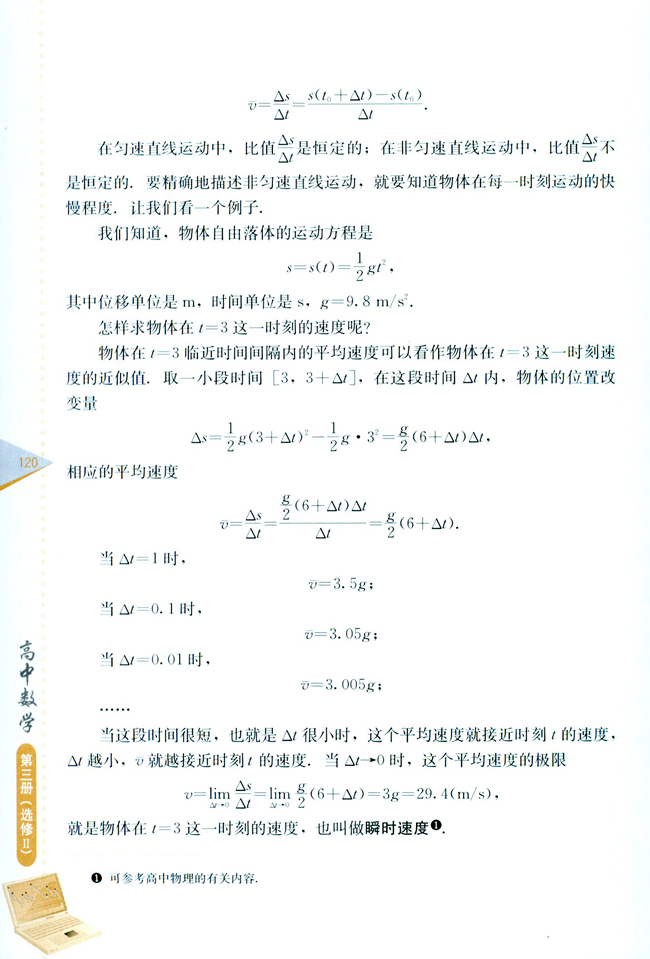 v̄=Δs/Δt=(s(t₀+Δt)-s(t₀))/Δt.
在匀速直线运动中，比值Δs/Δt是恒定的；在非匀速直线运动中，比值Δs/Δt不
是恒定的．要精确地描述非匀速直线运动，就要知道物体在每一时刻运动的快
慢程度．让我们看一个例子．
我们知道，物体自由落体的运动方程是
s=s(t)=1/2 gt²，
其中位移单位是 m，时间单位是 s，g=9.8 m/s².
怎样求物体在 t=3 这一时刻的速度呢?
物体在 t=3 临近时间间隔内的平均速度可以看作物体在 t=3 这一时刻速
度的近似值．取一小段时间 [3，3+Δt]，在这段时间 Δt 内，物体的位置改
变量
Δs=1/2 g(3+Δt)²-1/2 g·3²=g/2 (6+Δt)Δt，
相应的平均速度
v̄=Δs/Δt=(g/2 (6+Δt)Δt)/Δt=g/2 (6+Δt).
当 Δt=1 时，
v̄=3.5g；
当 Δt=0.1 时，
v̄=3.05g；
当 Δt=0.01 时，
v̄=3.005g；
……
当这段时间很短，也就是 Δt 很小时，这个平均速度就接近时刻 t 的速度，
Δt 越小，v̄ 就越接近时刻 t 的速度．当 Δt→0 时，这个平均速度的极限
v=lim(Δt→0) Δs/Δt=lim(Δt→0) g/2 (6+Δt)=3g=29.4(m/s)，
就是物体在 t=3 这一时刻的速度，也叫做瞬时速度❶.
❶ 可参考高中物理的有关内容.
120
高中数学
第三册（选修Ⅱ）